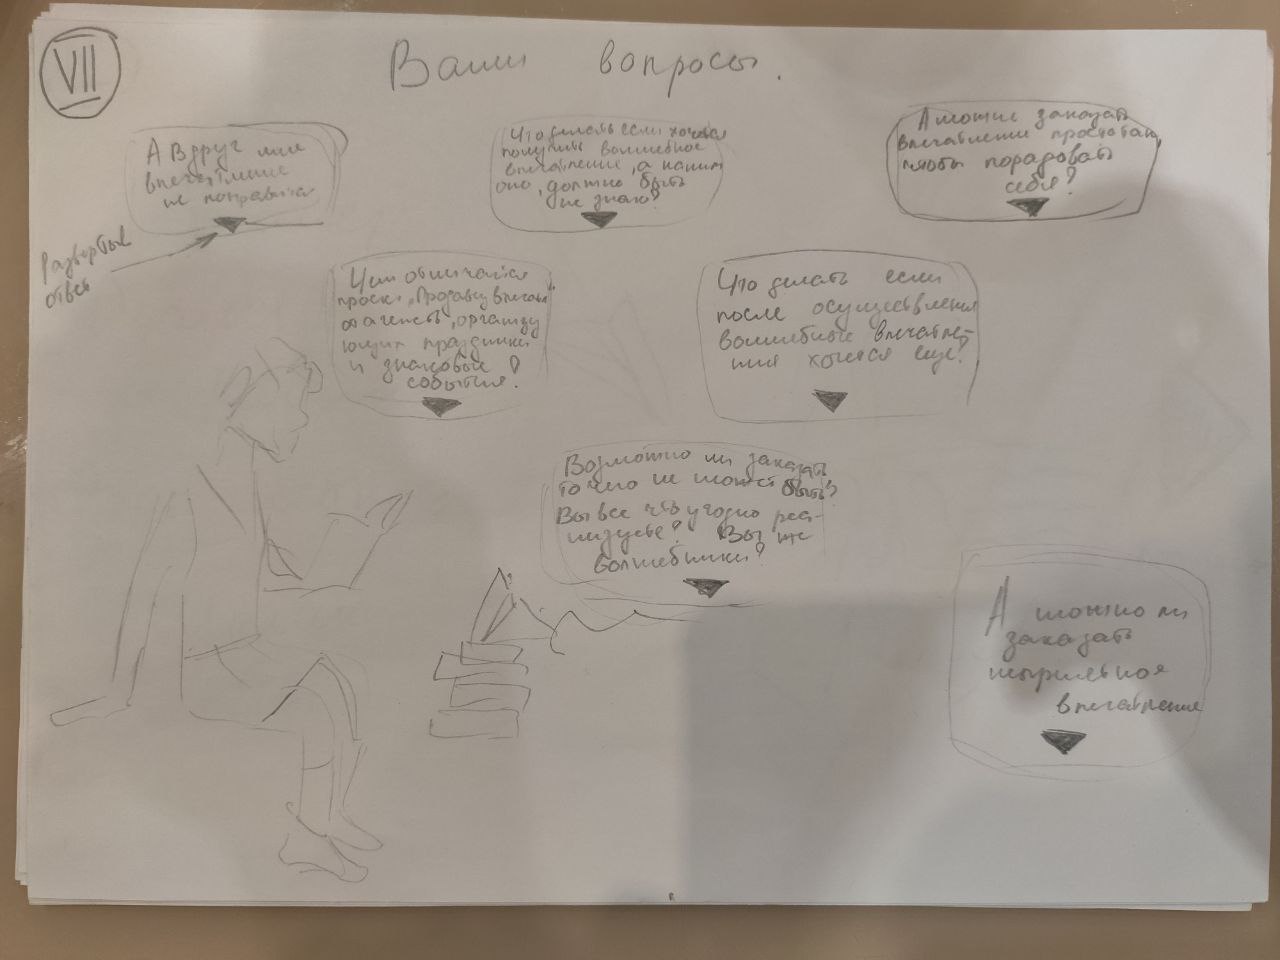 VII
Ваши вопросы.
А вдруг мне
впечатление
не понравится
Развертыв
ответ
Что делать если хочется
получить волшебное
впечатление, а каким
оно, должно быть
не знаю?
А можно заказать
впечатление просто так,
чтобы порадовать
себя?
Чем отличается
проект „Продавец впечатл"
от агенств, организу
ющих праздники
и знаковые
события?
Что делать если
после осуществления
волшебные впечатле-
ния хочется еще?
Возможно ли заказать
то чего не может быть?
Вы все что угодно реа-
лизуете? Вы же
волшебники?
А можно ли
заказать
впечатление